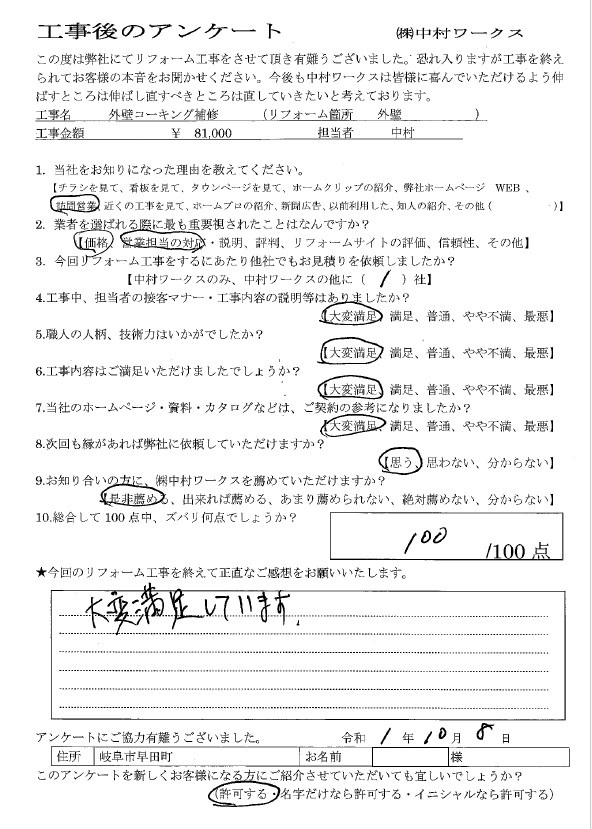 工事後のアンケート ㈱中村ワークス
この度は弊社にてリフォーム工事をさせて頂き有難うございました。恐れ入りますが工事を終え
られてお客様の本音をお聞かせください。今後も中村ワークスは皆様に喜んでいただけるよう伸
ばすところは伸ばし直すべきところは直していきたいと考えております。
工事名 外壁コーキング補修 （リフォーム箇所 外壁 ）
工事金額 ￥ 81,000 担当者 中村
1. 当社をお知りになった理由を教えてください。
【チラシを見て、看板を見て、タウンページを見て、ホームクリップの紹介、弊社ホームページ WEB 、
訪問営業、近くの工事を見て、ホームプロの紹介、新聞広告、以前利用した、知人の紹介、その他（ ）】
2. 業者を選ばれる際に最も重要視されたことはなんですか？
【価格、営業担当の対応・説明、評判、リフォームサイトの評価、信頼性、その他】
3. 今回リフォーム工事をするにあたり他社でもお見積りを依頼しましたか？
【中村ワークスのみ、中村ワークスの他に（ 1 ）社】
4.工事中、担当者の接客マナー・工事内容の説明等はありましたか？
【大変満足、満足、普通、やや不満、最悪】
5.職人の人柄、技術力はいかがでしたか？
【大変満足、満足、普通、やや不満、最悪】
6.工事内容はご満足いただけましたでしょうか？
【大変満足、満足、普通、やや不満、最悪】
7.当社のホームページ・資料・カタログなどは、ご契約の参考になりましたか？
【大変満足、満足、普通、やや不満、最悪】
8.次回も縁があれば弊社に依頼していただけますか？
【思う、思わない、分からない】
9.お知り合いの方に、㈱中村ワークスを薦めていただけますか？
【是非薦める、出来れば薦める、あまり薦められない、絶対薦めない、分からない】
10.総合して 100 点中、ズバリ何点でしょうか？
100 /100 点
★今回のリフォーム工事を終えて正直なご感想をお願いいたします。
大変満足しています.
アンケートにご協力有難うございました。 令和 1 年 10 月 8 日
住所 岐阜市早田町 お名前 様
このアンケートを新しくお客様になる方にご紹介させていただいても宜しいでしょうか？
（許可する・名字だけなら許可する・イニシャルなら許可する）